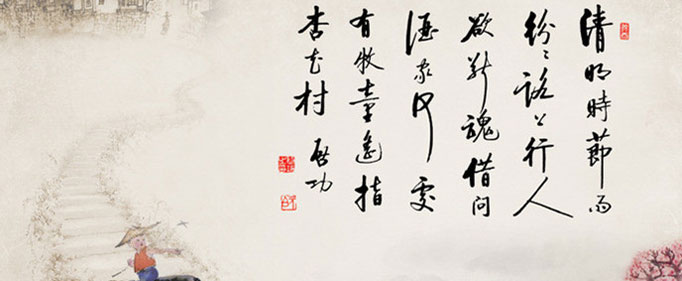 清明時節雨
紛〻路上行人
欲断魂借問
酒家何處
有牧童遙指
杏花村
啟功